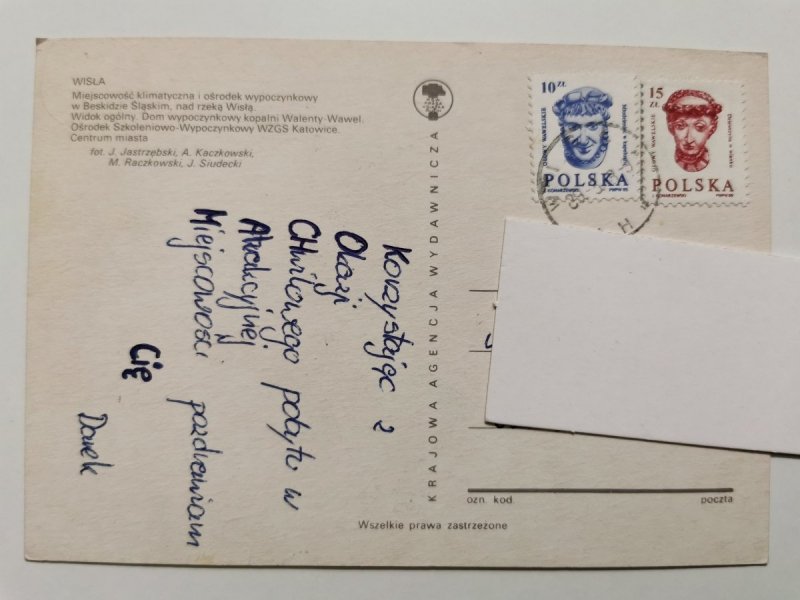 WISŁA
Miejscowość klimatyczna i ośrodek wypoczynkowy
w Beskidzie Śląskim, nad rzeką Wisłą.
Widok ogólny. Dom wypoczynkowy kopalni Walenty-Wawel.
Ośrodek Szkoleniowo-Wypoczynkowy WZGS Katowice.
Centrum miasta
fot. J. Jastrzębski, A. Kaczkowski,
M. Raczkowski, J. Siudecki
Korzystając z
Okazji
CHwilowego pobytu w
Atrakcyjnej
Miejscowości pozdrawiam
Cię
Darek
KRAJOWA AGENCJA WYDAWNICZA
10 ZŁ
GŁOWY WAWELSKIE
POLSKA
KONARZEWSKI PWPW 85
15 ZŁ
GŁOWY WAWELSKIE
POLSKA
KONARZEWSKI PWPW 85
ozn. kod. poczta
Wszelkie prawa zastrzeżone